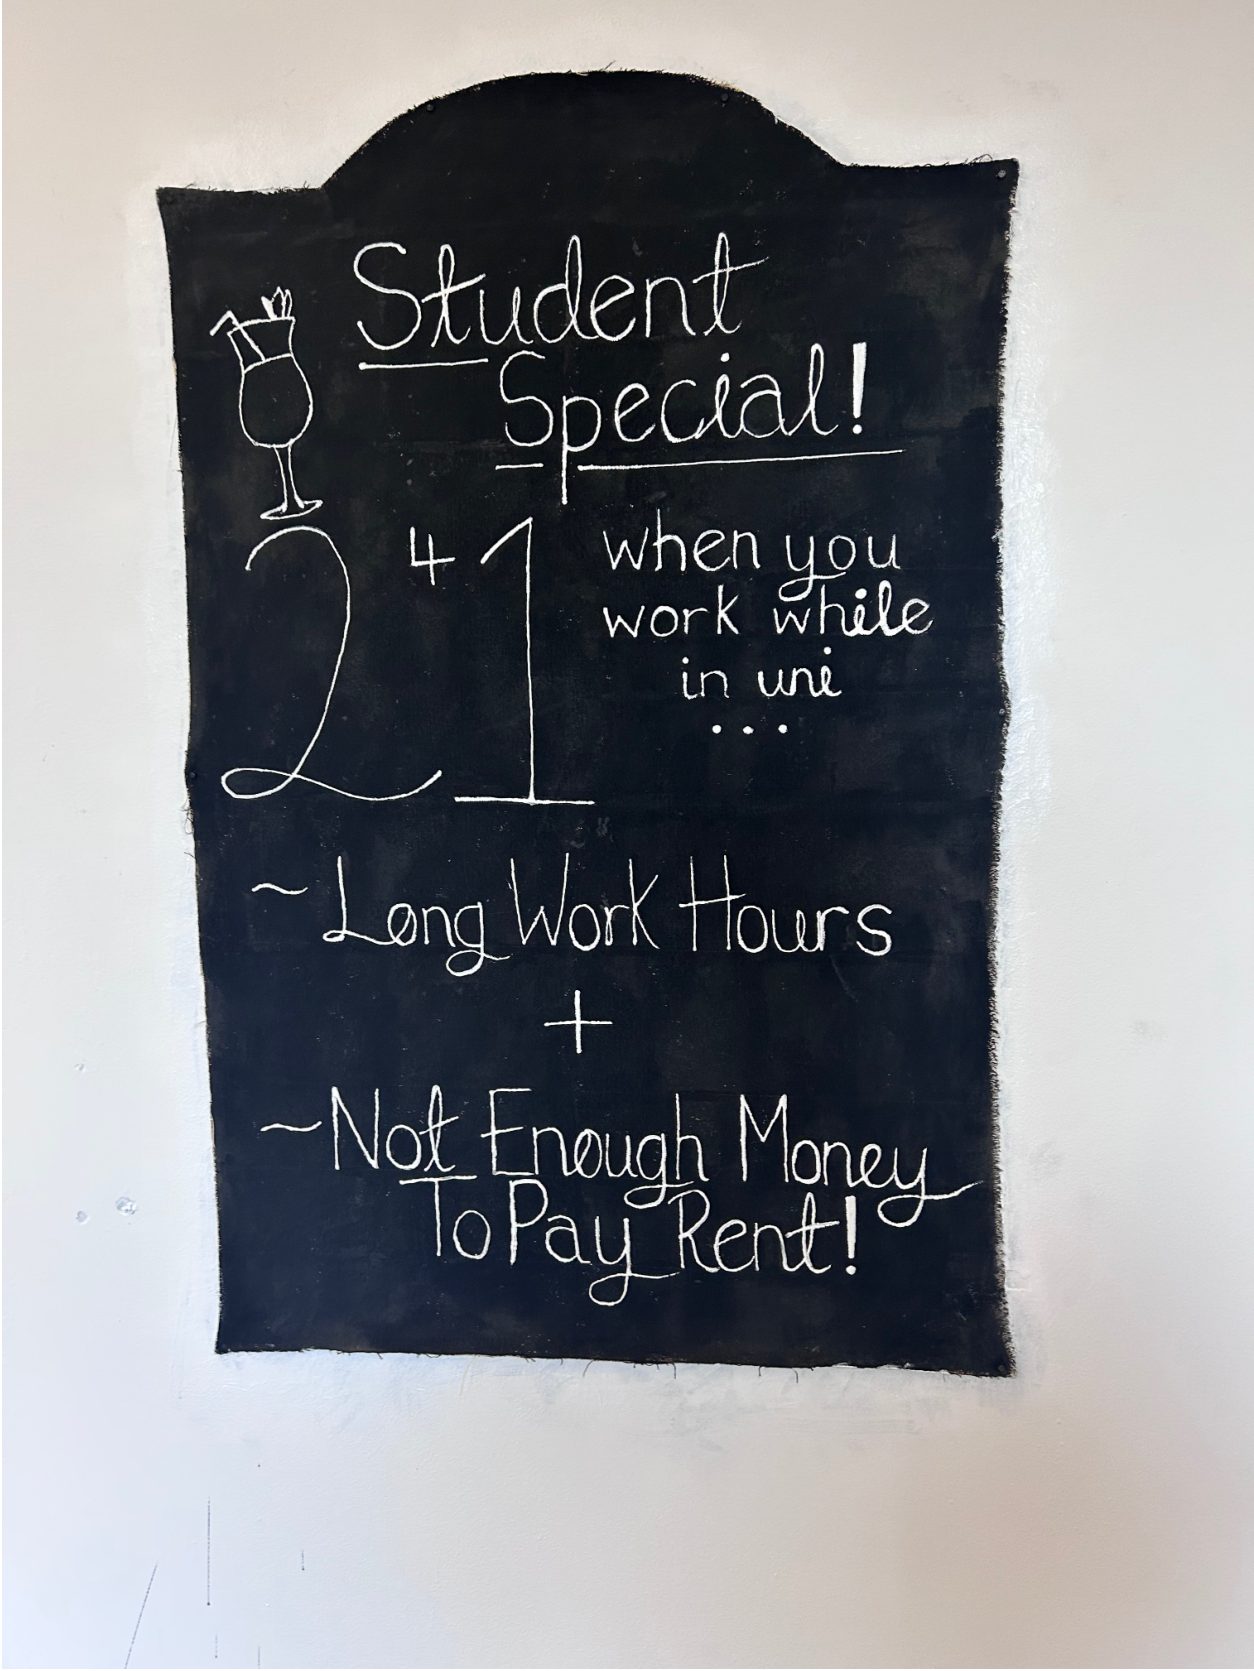 Student
Special!
2 4 1
when you
work while
in uni
...
~Long Work Hours
+
~Not Enough Money
To Pay Rent!